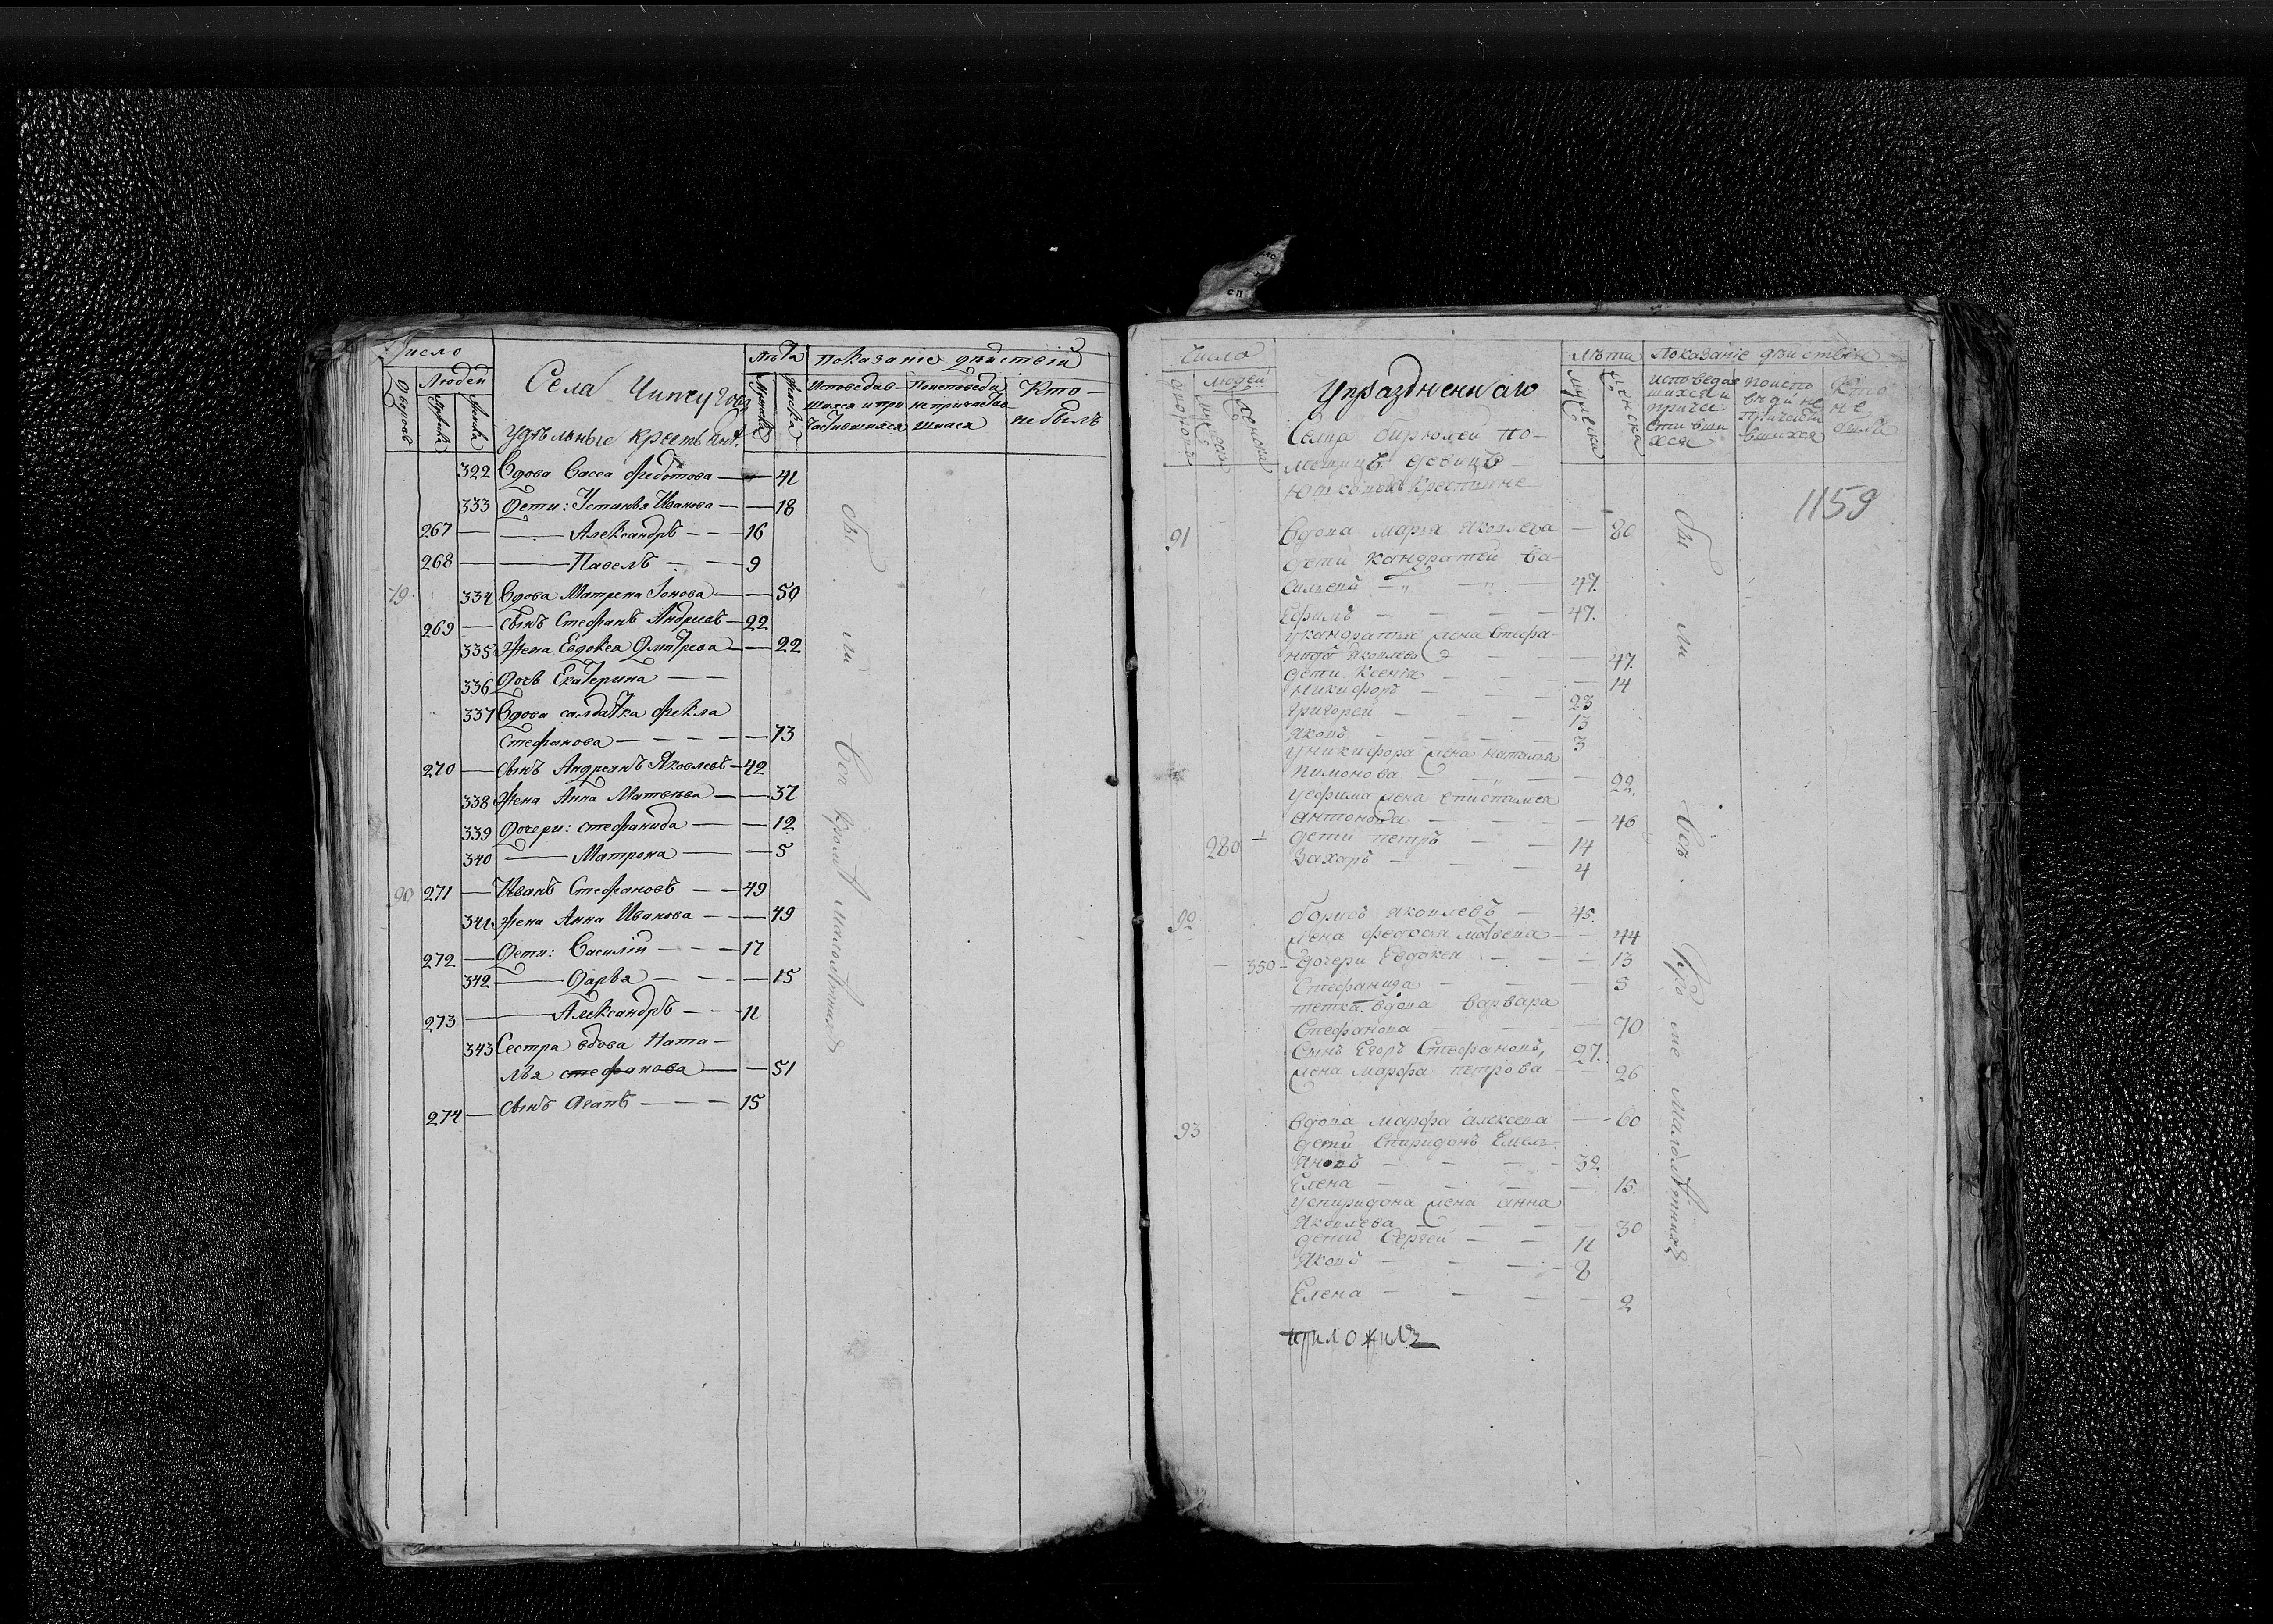 Число
Людей
Дворовъ
Села
Удѣльные крестьяне
Лѣта
Показанiе дѣйствiй
Исповедав- Поисповеди Кто
шихся и при не причастив
частившихся шихся не былъ
322 Вдова Васса Федотова — 41
333 Дети: Устинья Иванова — 18
267 — Александръ — 16
268 — Павелъ — 9
79 334 Вдова Матрена Iонова — 50
269 — сынъ Стефанъ Андреевъ — 22
335 Жена Евдокея Дмитрева — 22
336 Дочь Екатерина —
337 Вдова салдатка Фекла
Стефанова — 73
270 — сынъ Андреянъ Яковлевъ — 42
338 Жена Анна Матвѣева — 37
339 Дочери: Стефанида — 12
340 — Матрона — 5
90 271 — Иванъ Стефановъ — 49
341 Жена Анна Иванова — 49
272 — Дети: Василiй — 17
342 — Дарья — 15
273 — Александръ — 11
343 Сестра вдова Ната-
лья стефанова — 51
274 — сынъ Агапъ — 15
бы ли Всѣ кромѣ малолѣтнихъ
Число
людей
Упраздненнаго
Селца Бирюлей по-
мещицъ девицъ
Юшковыхъ крестьяне
Лѣта
мужеска
женска
Показанiе дѣйствiи
исповедав поиспо Кто
шихся и вѣди не не
прича причасти были
стивши вшихся
хся
1159
91 Вдова Марья Яковлева — 80
дети Кандратей Ва-
сильевъ — 47.
Ефимъ — 47.
у кандратья жена Стефа-
нида Яковлева — 47.
дети Ксенiя — 14
Никифоръ — 23
Григорей — 13
Яковъ — 3
У никифора жена наталья
Пимонова — 22.
У ефима жена епистимея
антонова — 46
280 — дети петръ — 14
Захаръ — 4
92 Борисъ Яковлевъ — 45.
жена федосья матвева — 44
— 350 — дочери Евдокея — 13
Стефанида — 5
тетка вдова Варвара
Стефанова — 70
Сынъ Егоръ Стефановъ, 27.
жена марфа петрова — 26
93 Вдова Марфа алексева — 60
дети Спиридонъ Емель-
яновъ — 32
Елена — 15.
У спиридона жена анна
Яковлева — 30
дети Сергей — 11
Яковъ — 8
Елена — 2
приложилъ
бы ли Всѣ кроме малолѣтнихъ